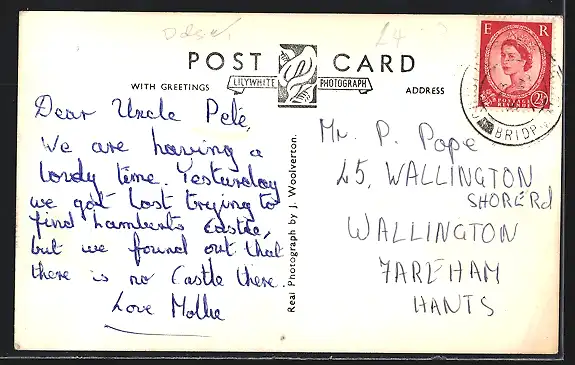 Dorset
£4
POST CARD
WITH GREETINGS
LILYWHITE PHOTOGRAPH
ADDRESS
E R
POSTAGE
2½
BRIDP
Dear Uncle Pete,
We are having a
lovely time. Yesturday
we got lost trying to
find Lamberts Castle,
but we found out that
there is no Castle there.
Love Mollie
Real Photograph by J. Woolverton.
Mr. P. Pope
45, WALLINGTON
SHORE Rd
WALLINGTON
FAREHAM
HANTS